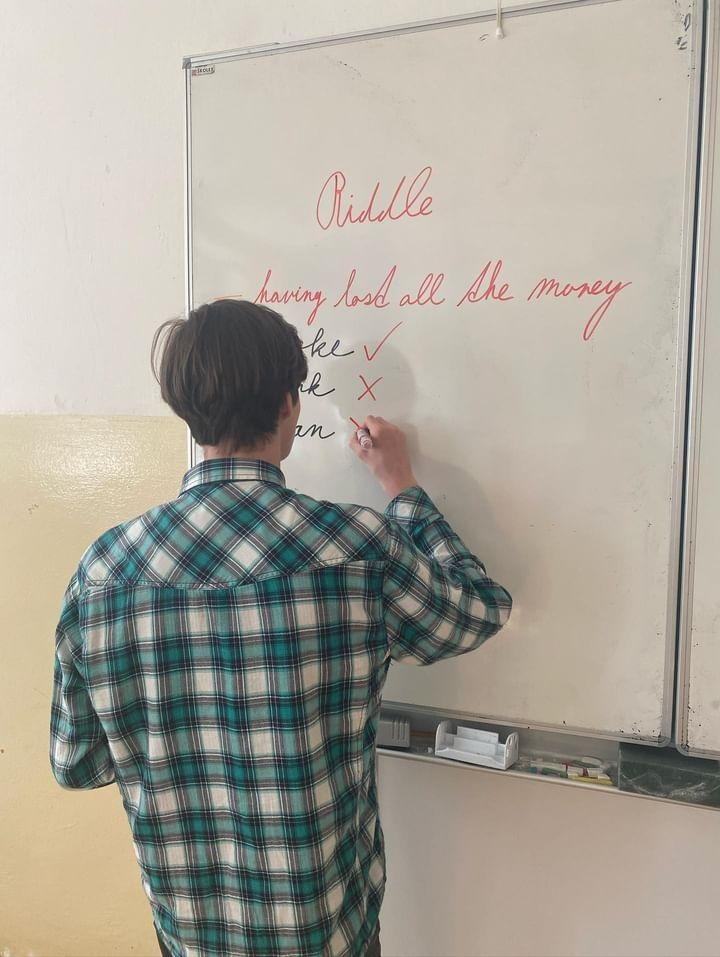 SKOLEX
Riddle
– having lost all the money
oke ✓
nk X
an